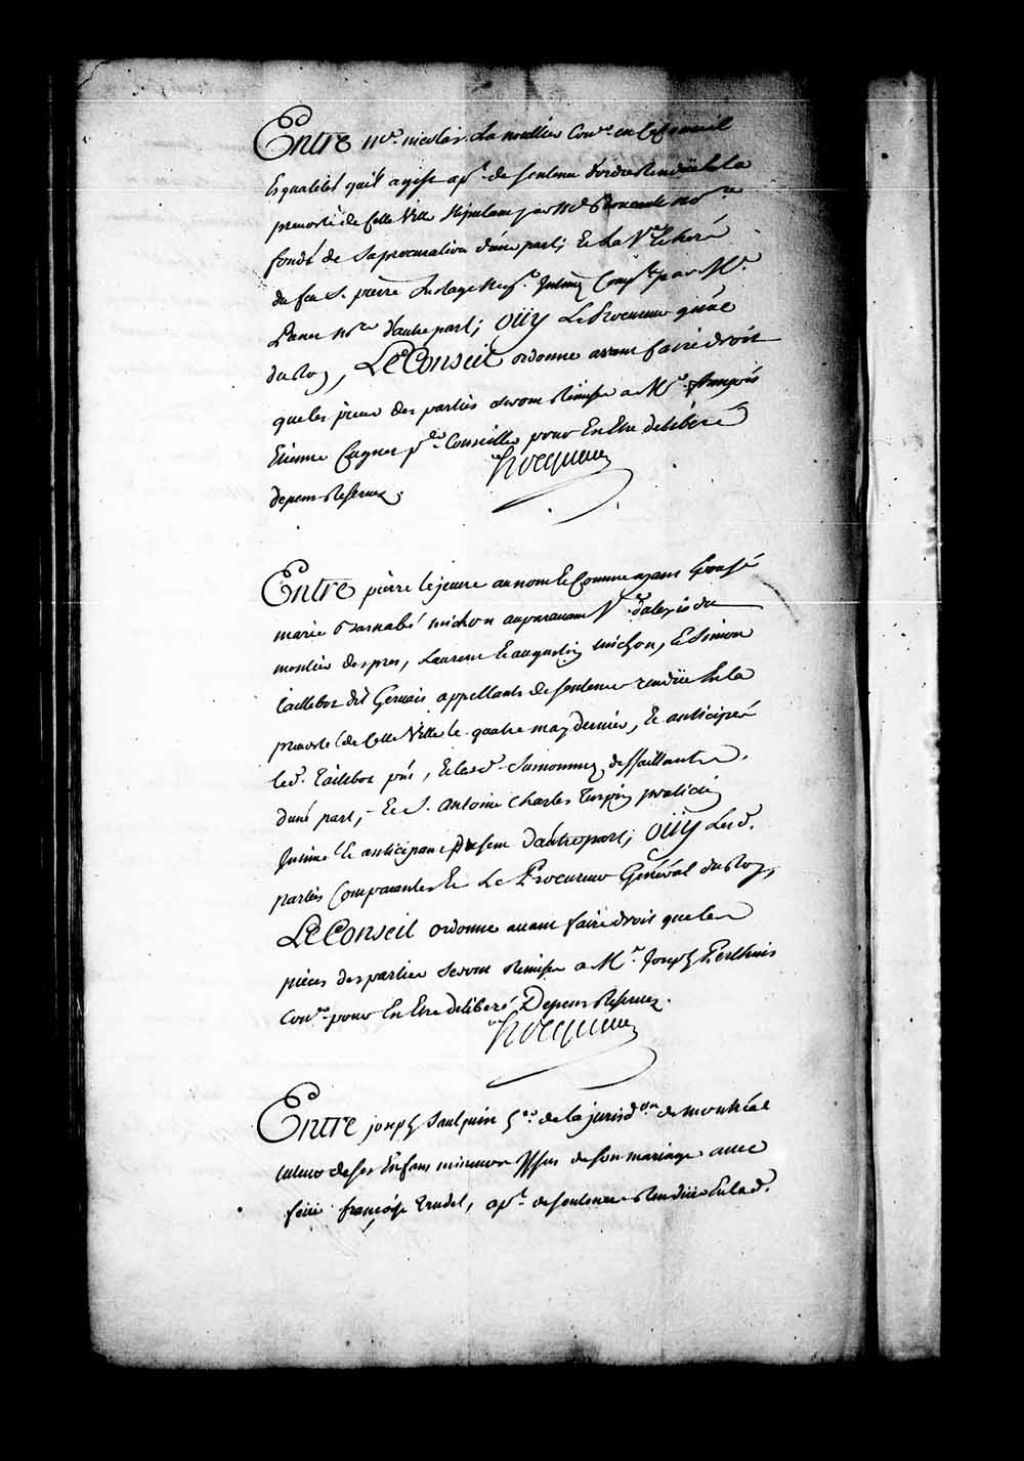 Entre Me. nicolas Lanoullier Con.er en ce Conseil
Es qualités quil agist ap.t de sentence d'ordre Rendüe En la
prevosté de Cette Ville Stipulant par Me. no.re
fondé de sa procuration d'une part; Et la V.e
du feu S. pierre neg.t Intimée Comp.te par Me.
no.re d'autre part; Oüy Le Procureur gñal
du Roy, Le Conseil ordonne avant faire droit
que les pieces des parties seront Remises a Mr. françois
Etienne Cugnet p.er Conseiller pour En Etre deliberé
depens Reservez.
hocquart
Entre pierre lejeune au nom Et Comme ayant Epousé
marie Barnabé michon auparavant V.e d'alexis du
moulin despres, Laurent Et augustin michon, Et Simon
taillebot dit Gervais appellants de sentence rendüe En la
prevosté de Cette Ville le quatre may dernier, Et anticipés
led. taillebot pñt, Et les d. Susnommez deffaillants
d'une part, Et S. antoine Charles Turpin praticien
Intimé Et anticipant Present d'autre part; Oüy Lesd.
parties Comparantes Et Le Procureur Général du Roy,
Le Conseil ordonne avant faire droit que les
pièces des parties seront Remises a Mr. Joseph Perthuis
Con.er pour En Etre deliberé Depens Reservez.
hocquart
Entre joseph de la jurisd.on de montréal
tuteur de ses Enfans mineurs Issus de son mariage avec
feüe françoise trudel, ap.t de sentence Rendüe En lad.